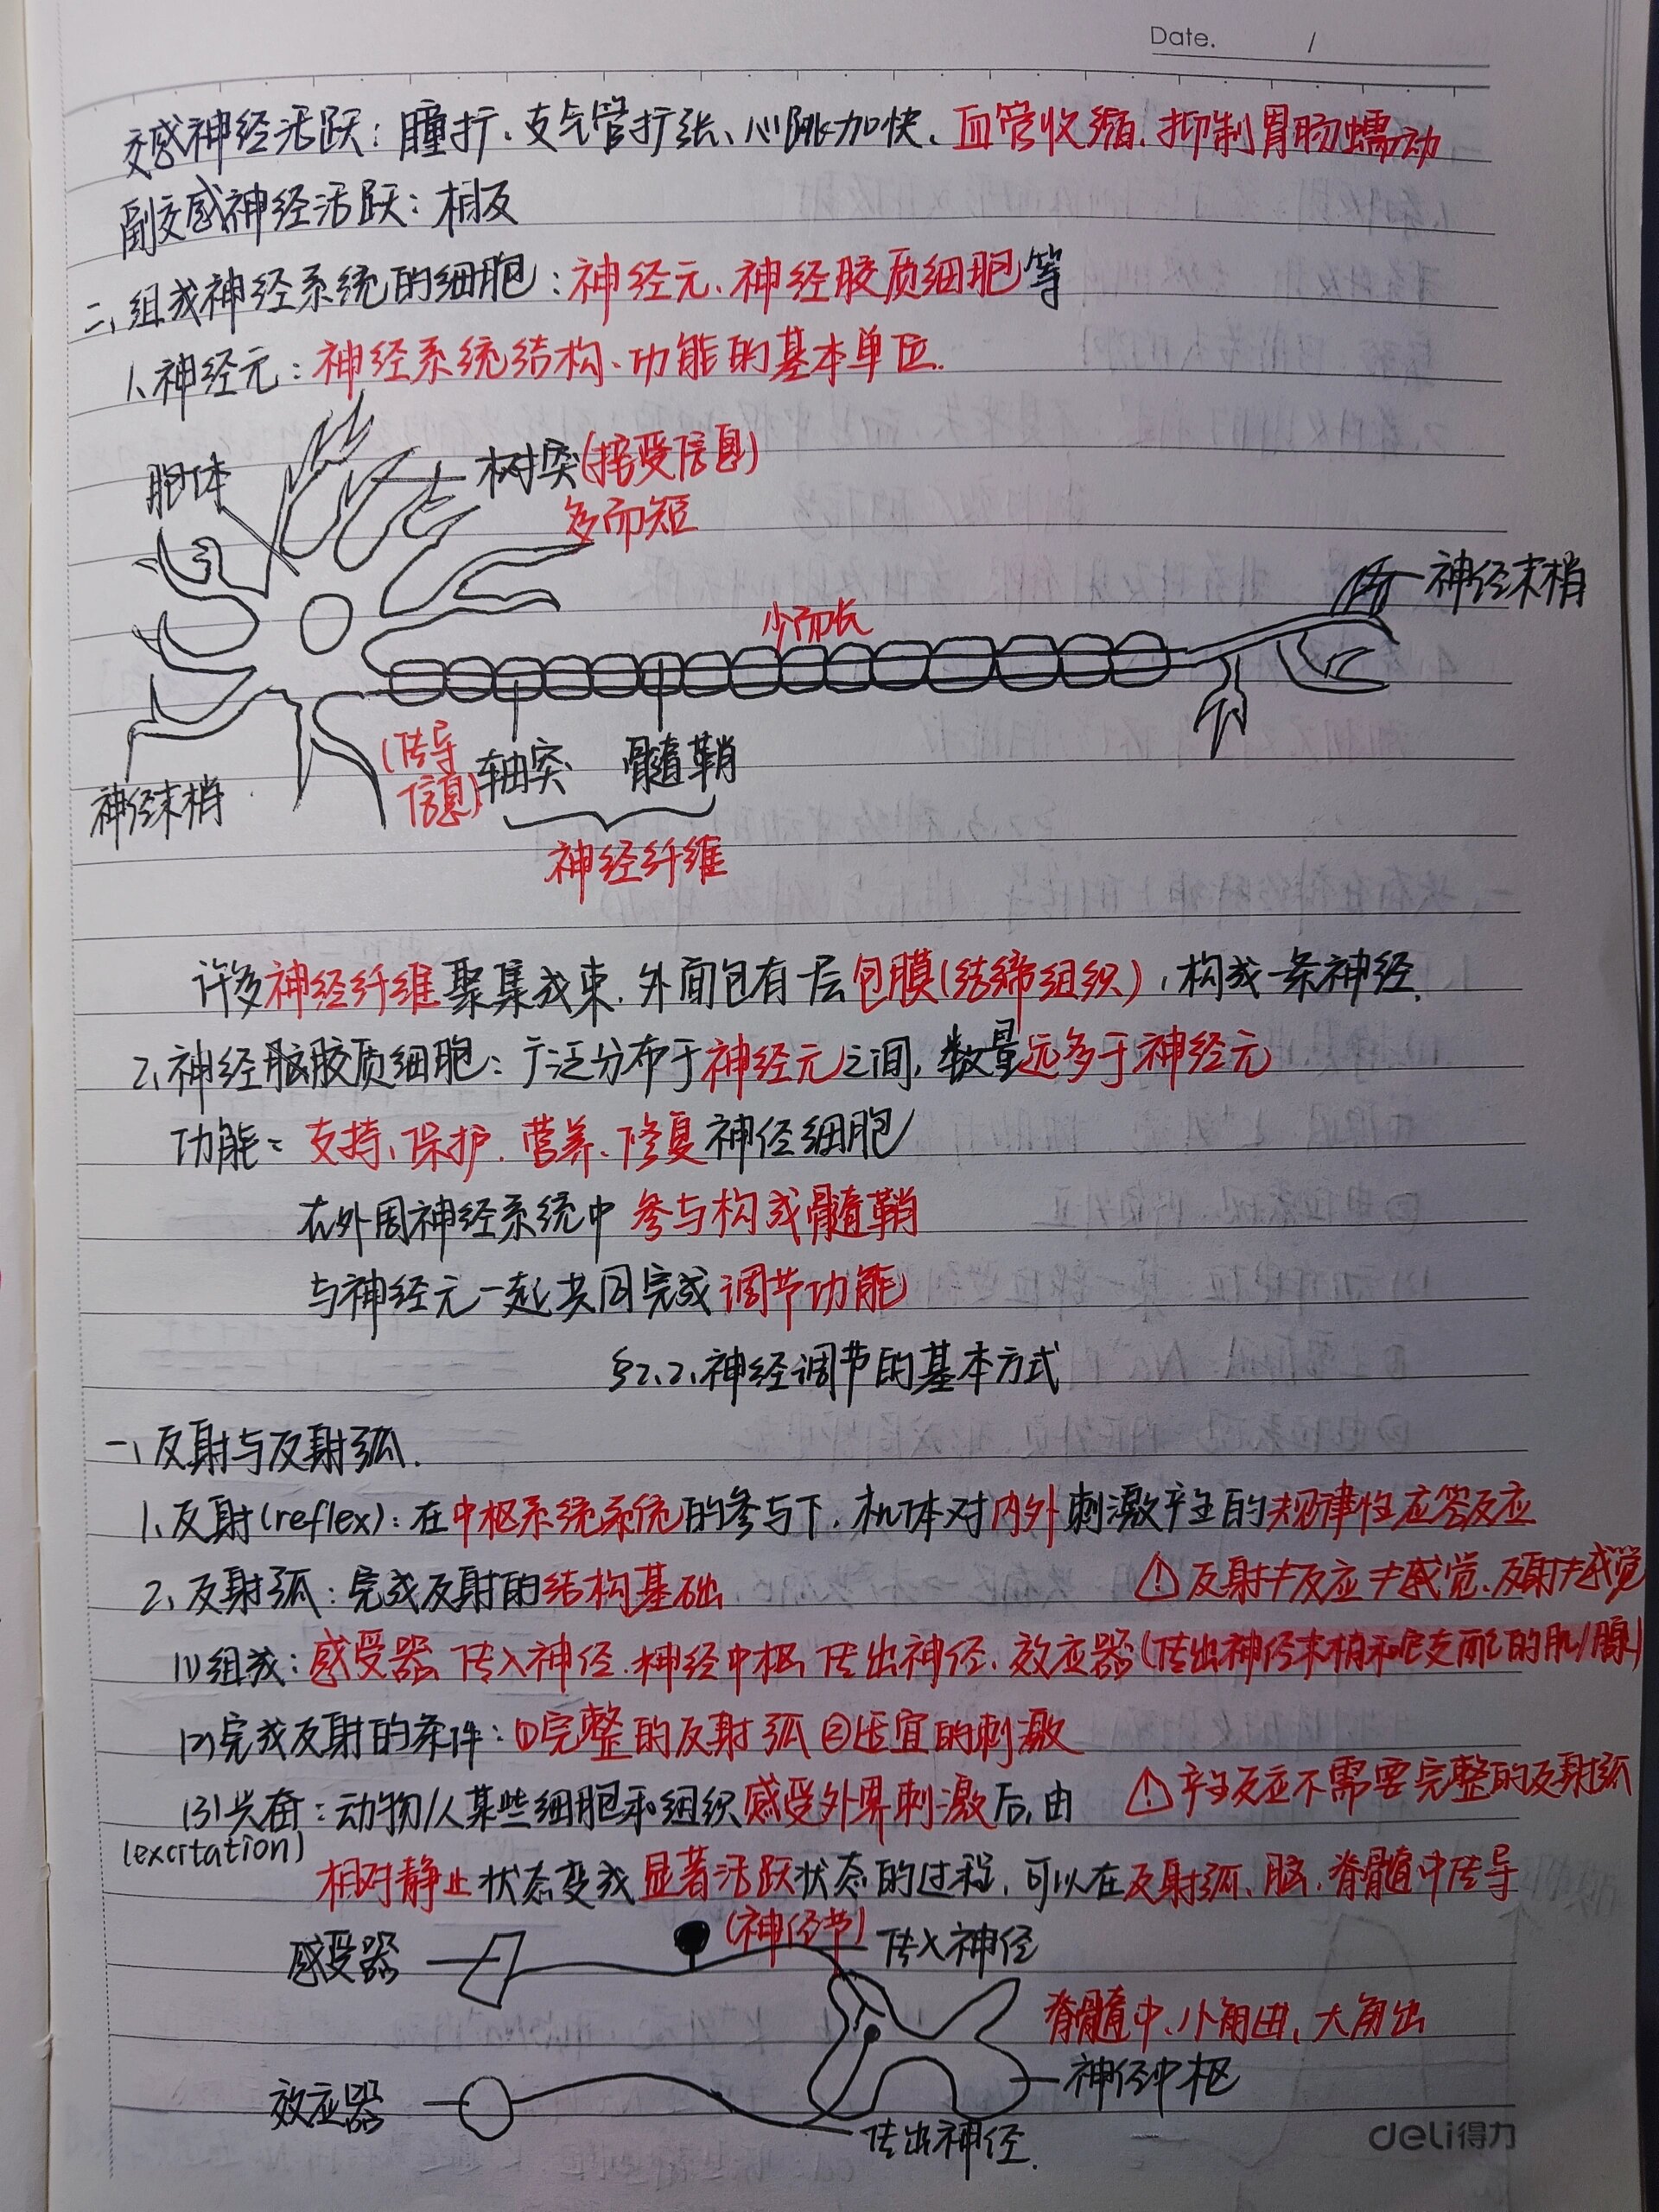 Date.        /
交感神经活跃：瞳扩、支气管扩张、心跳加快、血管收缩、抑制胃肠蠕动
副交感神经活跃：相反
二、组成神经系统的细胞：神经元、神经胶质细胞等
1、神经元：神经系统结构、功能的基本单位.
胞体
树突(接受信息)
多而短
神经末梢
少而长
(传导信息)
轴突
髓鞘
神经末梢
神经纤维
许多神经纤维聚集成束，外面包有一层包膜(结缔组织)，构成一条神经.
2、神经胶质细胞：广泛分布于神经元之间，数量远多于神经元
功能：支持、保护、营养、修复神经细胞
在外周神经系统中参与构成髓鞘
与神经元一起共同完成调节功能
§2.2、神经调节的基本方式
一、反射与反射弧.
1、反射(reflex)：在中枢系统系统的参与下，机体对内外刺激产生的规律性应答反应
2、反射弧：完成反射的结构基础
⚠反射≠反应≠感觉、反射≠感觉
(1)组成：感受器、传入神经、神经中枢、传出神经、效应器(传出神经末梢和它支配的肌/腺)
(2)完成反射的条件：①完整的反射弧②适宜的刺激
⚠产生反应不需要完整的反射弧
(3)兴奋：动物/人某些细胞和组织感受外界刺激后，由
(excitation)
相对静止状态变成显著活跃状态的过程，可以在反射弧、脑、脊髓中传导
感受器
(神经节)
传入神经
脊髓中、小角进、大角出
神经中枢
效应器
传出神经.
deli得力